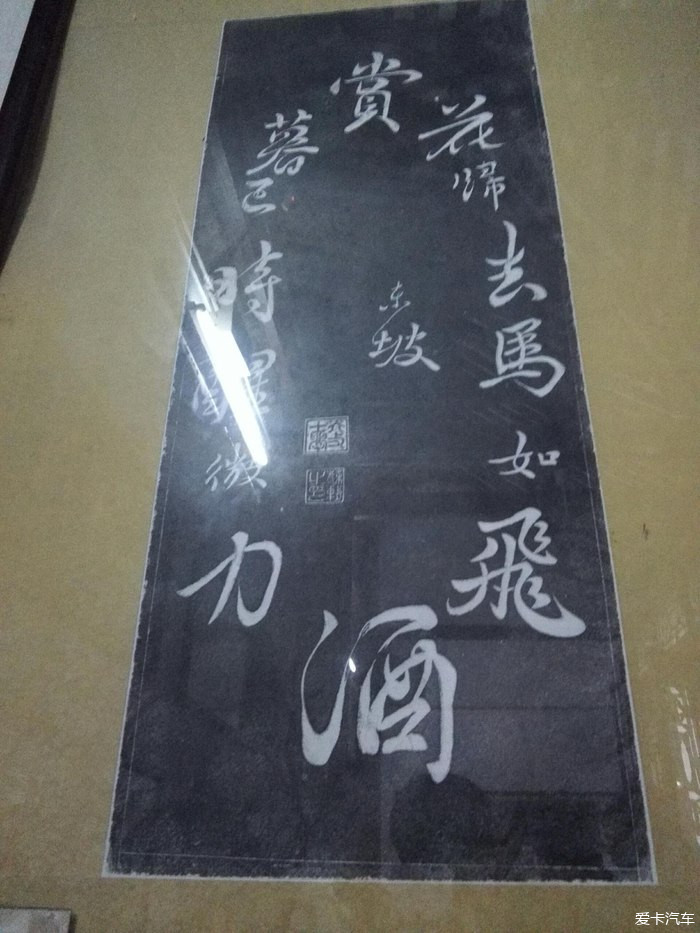 賞花歸去馬如飛酒力微醒時已暮
东坡
爱卡汽车